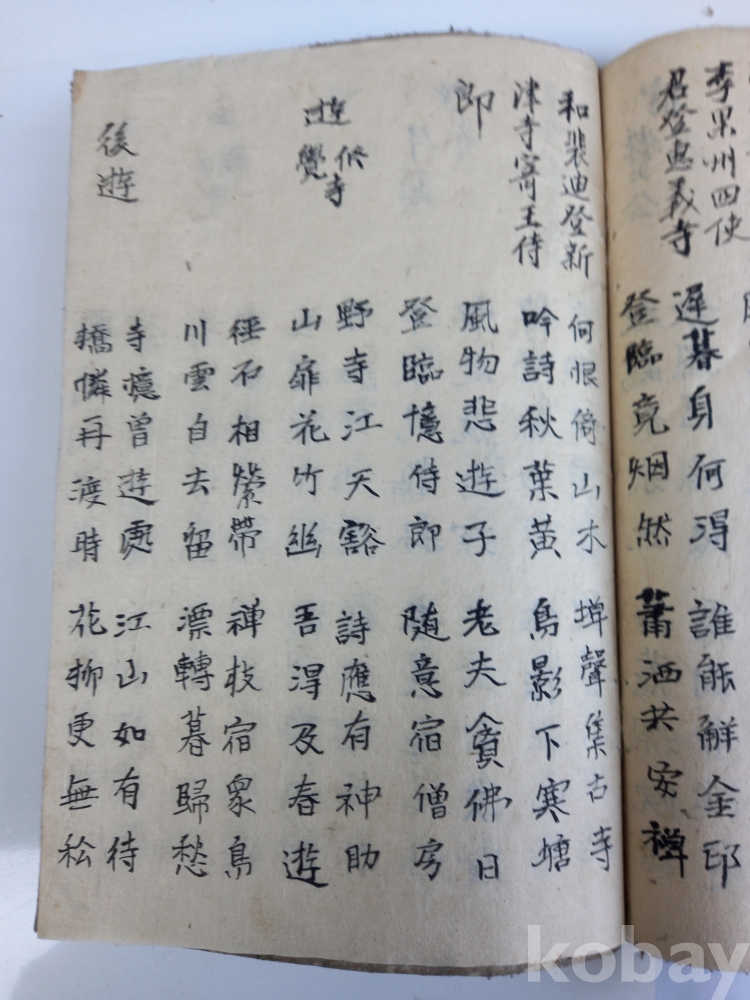 李果州四使
君登惠義寺
遲暮身何得 誰能解金印
登臨竟烟然 蕭洒共安禪
和裴迪登新
津寺寄王侍
郎
何恨倚山木 蟬聲集古寺
吟詩秋葉黃 鳥影下寒塘
風物悲遊子 老夫貪佛日
登臨憶侍郎 隨意宿僧房
遊修覺寺
野寺江天豁 詩應有神助
山扉花竹幽 吾得及春遊
徑石相縈帶 禪枝宿衆鳥
川雲自去留 漂轉暮歸愁
後遊
寺憶曾遊處 江山如有待
橋憐再渡時 花柳更無私
kobay